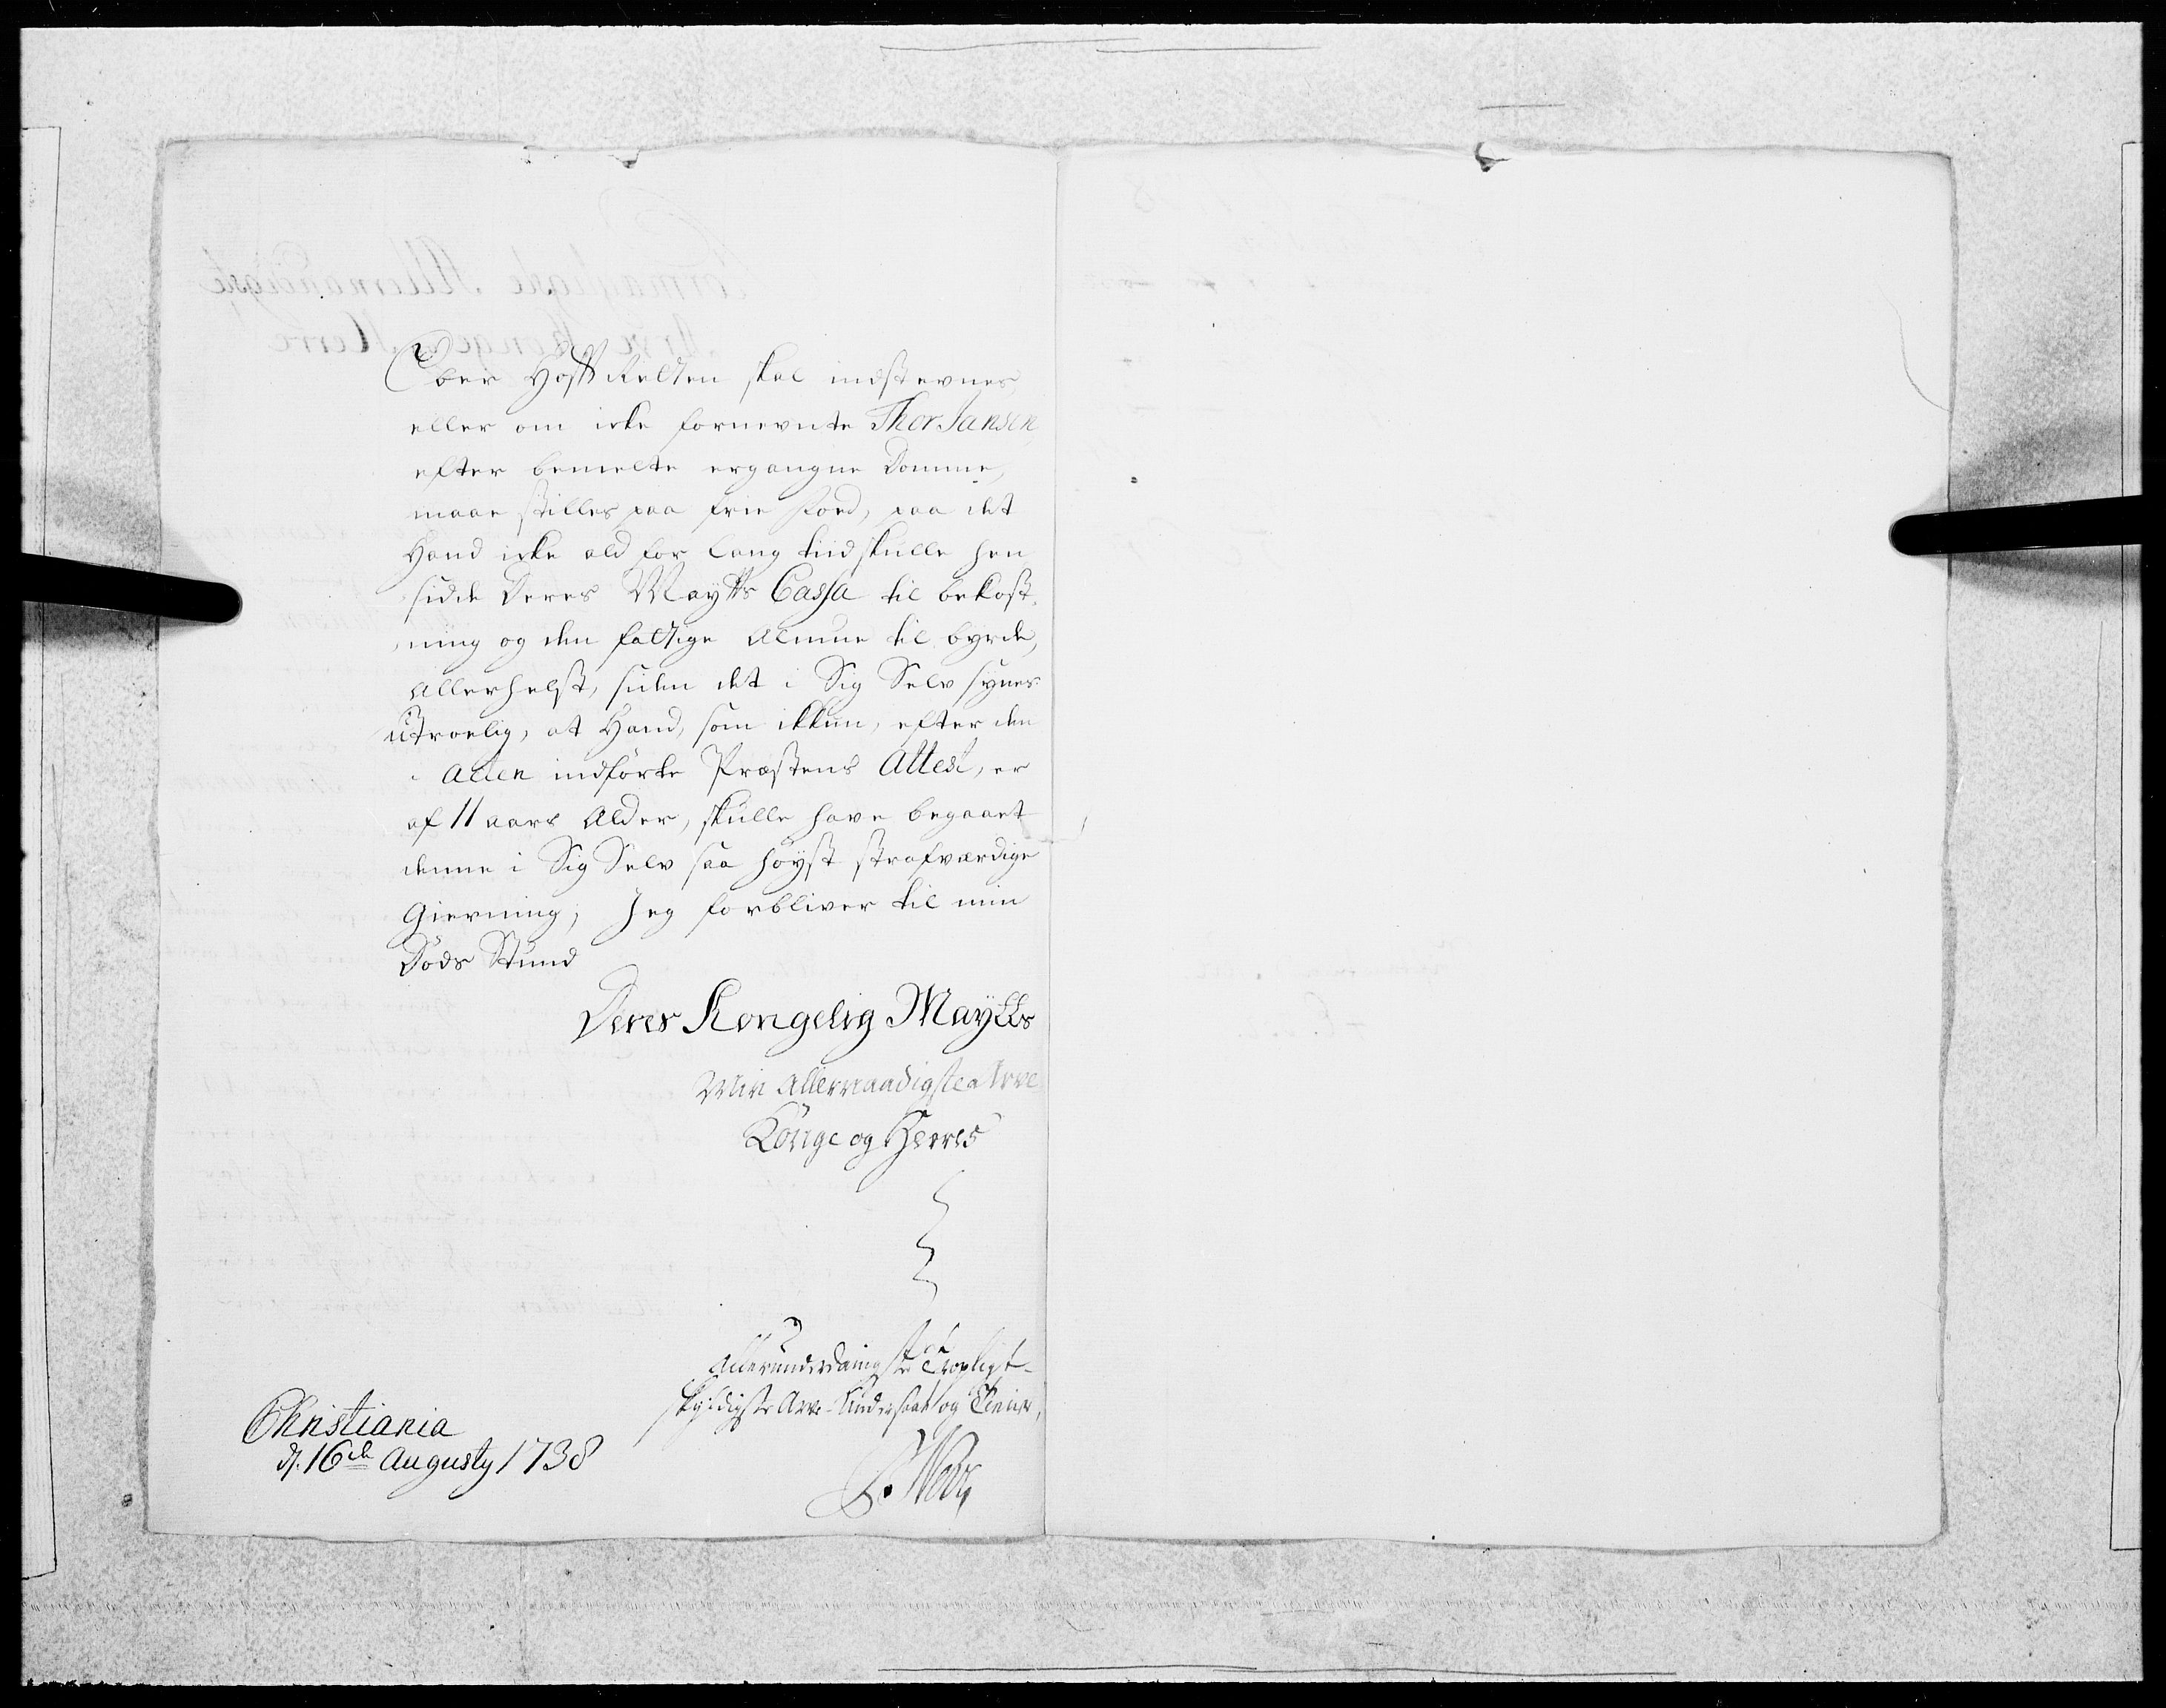 Over Hoff Retten skal indstevnes,
eller om icke fornevnte Thor Jansen,
efter bemelte ergangne Domme,
maae stilles paa frie Foed, paa det
Hand icke ald for lang tiid skulle hen
sidde Deres Maytts Cassa til bekost-
ning og den fattige Almue til byrde,
Allerhelst, siden det i Sig Selv synes
utroelig, at Hand, som ikkun, efter den
i Acten indførte Præstens Attest, er
af 11 aars Alder, skulle have begaaet
denne i Sig Selv saa høyst strafværdige
Gierning; Jeg forbliver til min
Døds Stund
Deres Kongelig Maytts
Min Allernaadigste Arve
Konge og Herres
Allerunderdanigste Tropligt-
skyldigste Arve-Undersaat og Tienner,
Christiania
d. 16de Augusty 1738